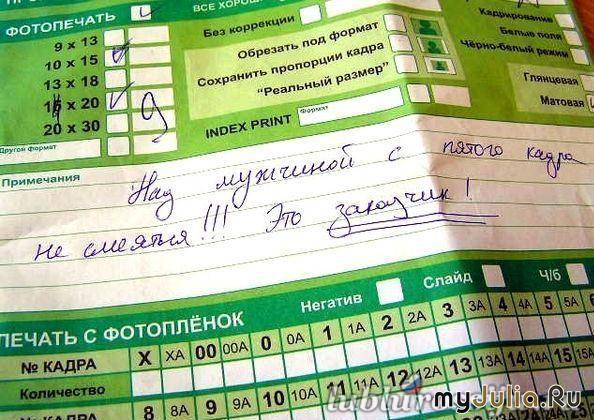 ВСЕ ХОРОШ
ФОТОПЕЧАТЬ
9 x 13
10 x 15
13 x 18
x 20
20 x 30
Другой формат
9
Без коррекции
Обрезать под формат
Сохранить пропорции кадра
"Реальный размер"
INDEX PRINT
Формат
Кадрирование
Белые поля
Чёрно-белый режим
Глянцевая
Матовая
Примечания
Над мужчиной с пятого кадра
не смеяться!!! Это заказчик!
ПЕЧАТЬ С ФОТОПЛЁНОК
Негатив
Слайд
Ч/б
№ КАДРА X XA 00 00A 0 0A 1 1A 2 2A 3 3A 4 4A 5 5A 6
Количество
№ КАДРА 8 8A 9 9A 10 10A 11 11A 12 12A 13 13A 14 14A 15 15A
myJulia.Ru